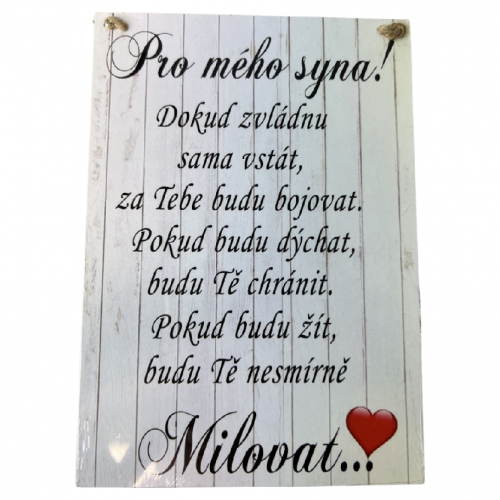 Pro mého syna!
Dokud zvládnu
sama vstát,
za Tebe budu bojovat.
Pokud budu dýchat,
budu Tě chránit.
Pokud budu žít,
budu Tě nesmírně
Milovat...